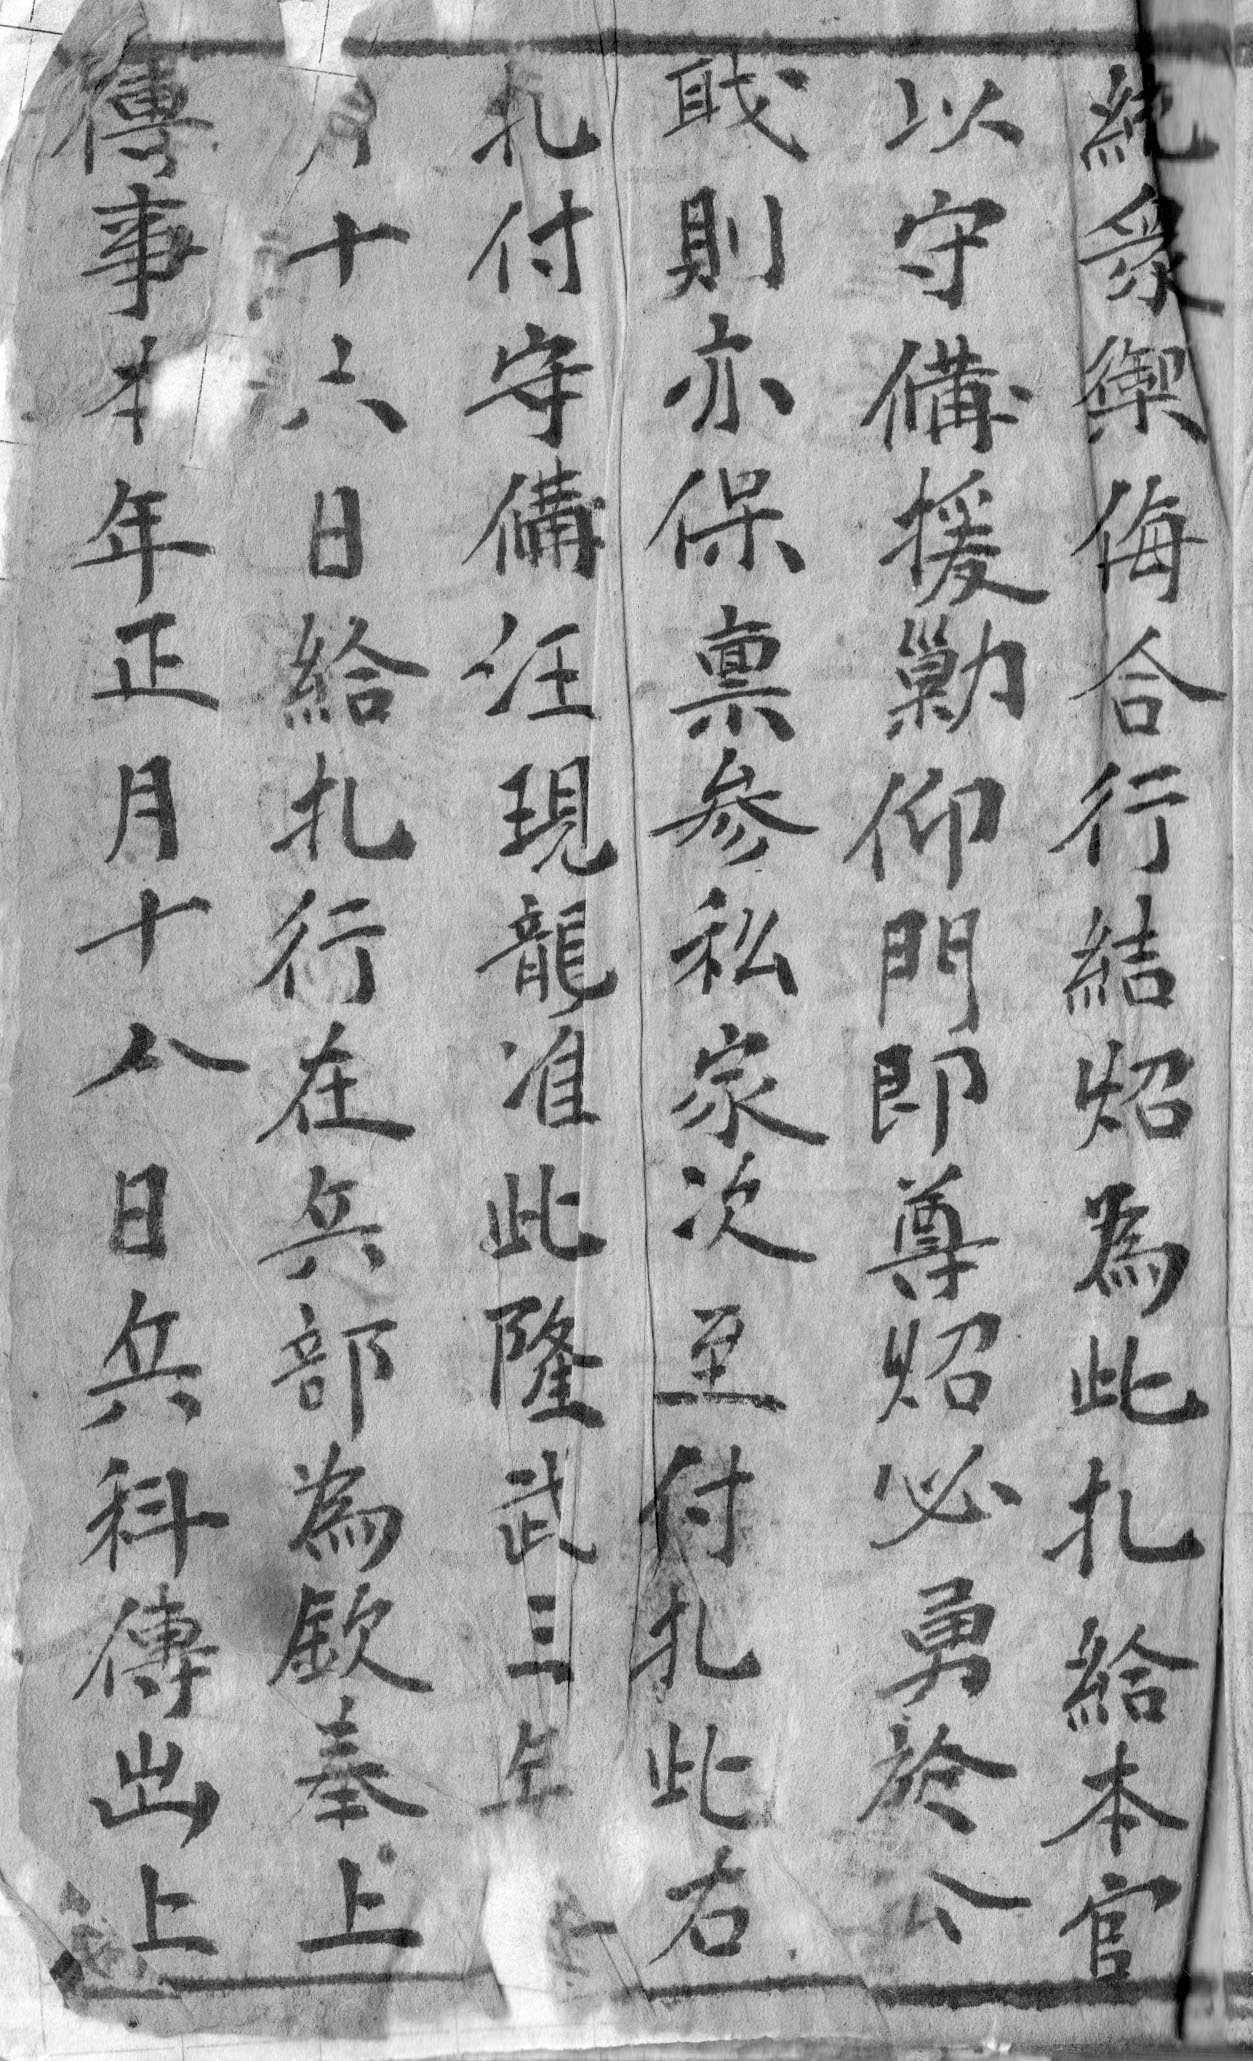 統衆禦侮合行結炤為此札給本官
以守備援勦仰門即尊炤必勇於公
戝則亦保禀參私家次至付札此右
札付守備汪現龍准此隆武三年
月十六日給札行在兵部為欽奉上
傳事本年正月十八日兵科傳出上